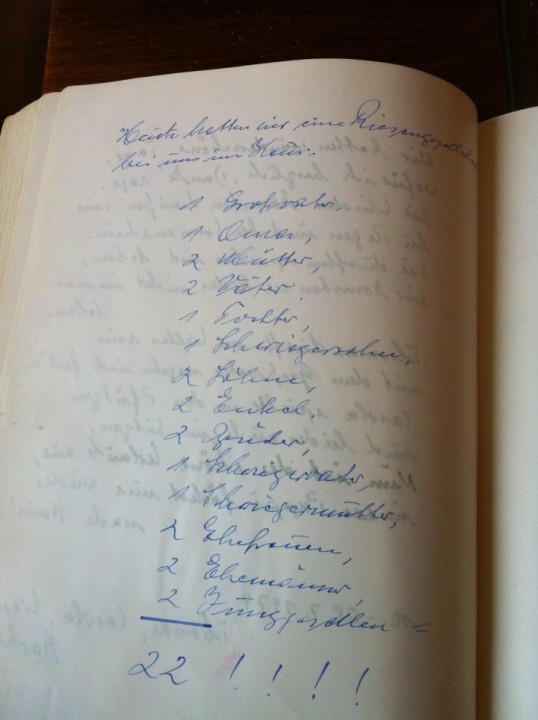 Heute hatten wir eine Riesengesellschaft
bei uns im Haus:
1 Großvater,
1 Oma,
2 Mütter,
2 Väter,
1 Tochter,
1 Schwiegersohn,
2 Söhne,
2 Enkel,
2 Brüder,
1 Schwiegervater,
1 Schwiegermutter,
2 Ehefrauen,
2 Ehemänner,
2 Junggesellen =
22 ! ! ! !